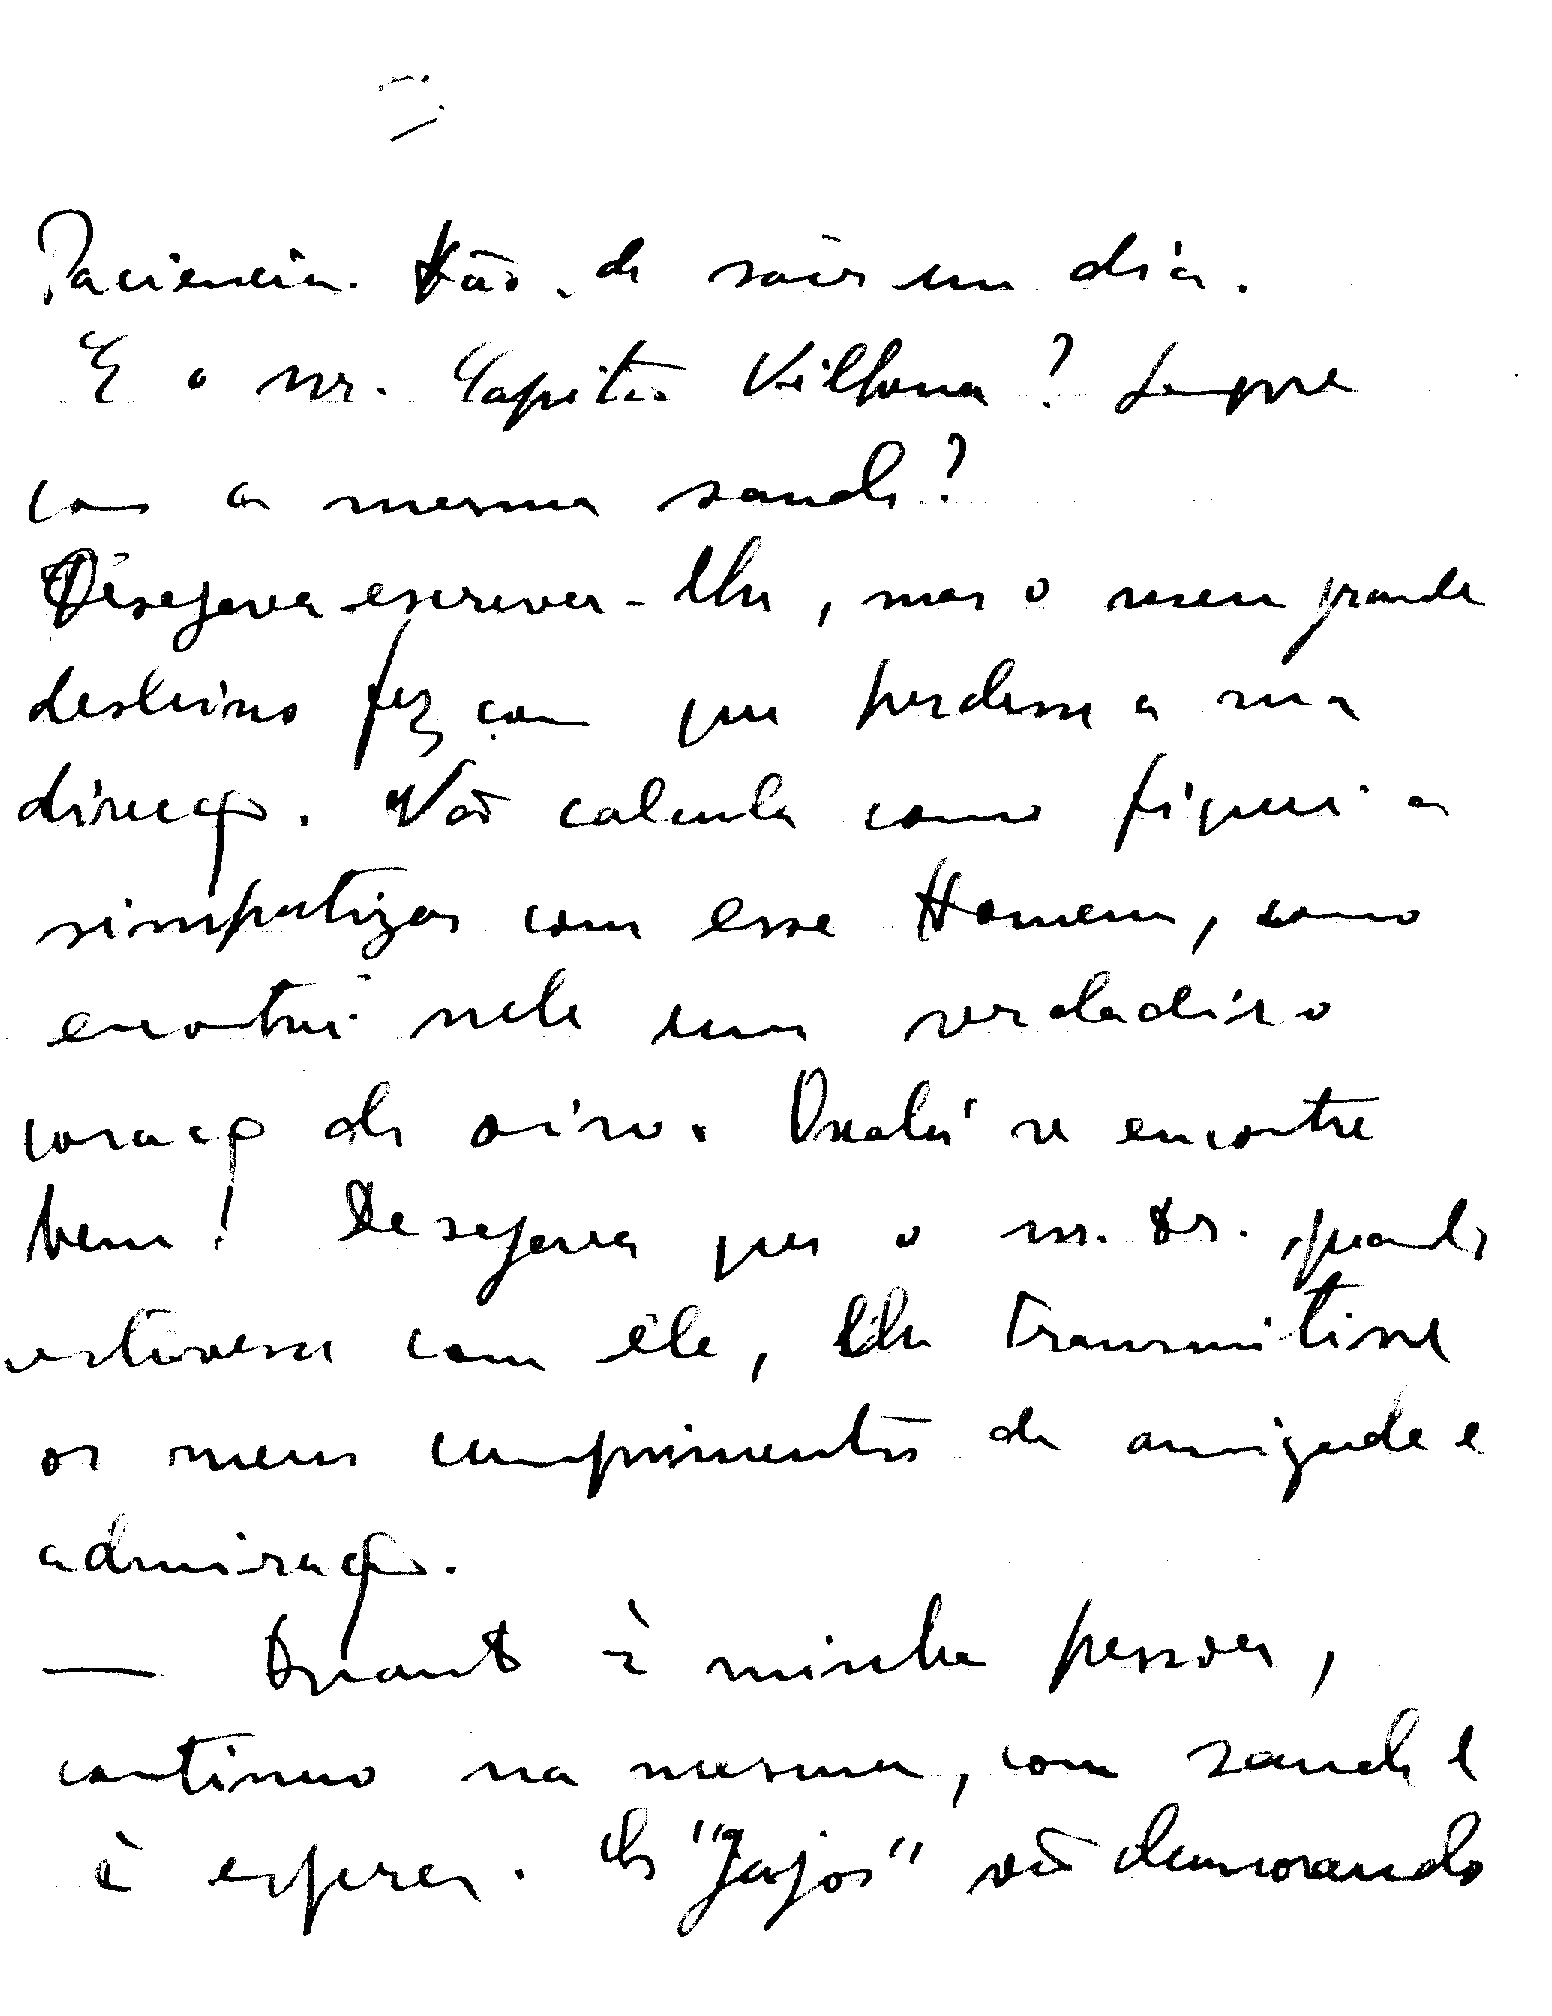 Paciencia. Hão de saír um dia.
E o sr. Capitão Vilhena? Sempre
com a mesma saude?
Desejava escrever-lhe, mas o meu grande
destino fez com que perdesse a sua
direcção. Não calcula como fiquei a
simpatizar com esse Homem, como
encontrei nele um verdadeiro
coração de oiro. Oxalá se encontre
bem! Desejava que o sr. Dr. quando
estivesse com êle, lhe transmitisse
os meus cumprimentos de amizade e
admiração.
— Quanto à minha pessoa,
continuo na mesma, com saude e
à espera. Os "Jajos" vão demorando